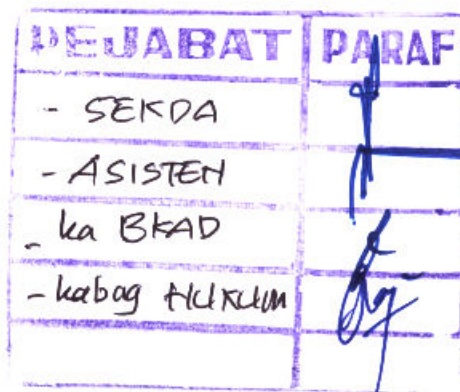 PEJABAT PARAF
- SEKDA
- ASISTEN
- ka BKAD
- kabag HUKUM